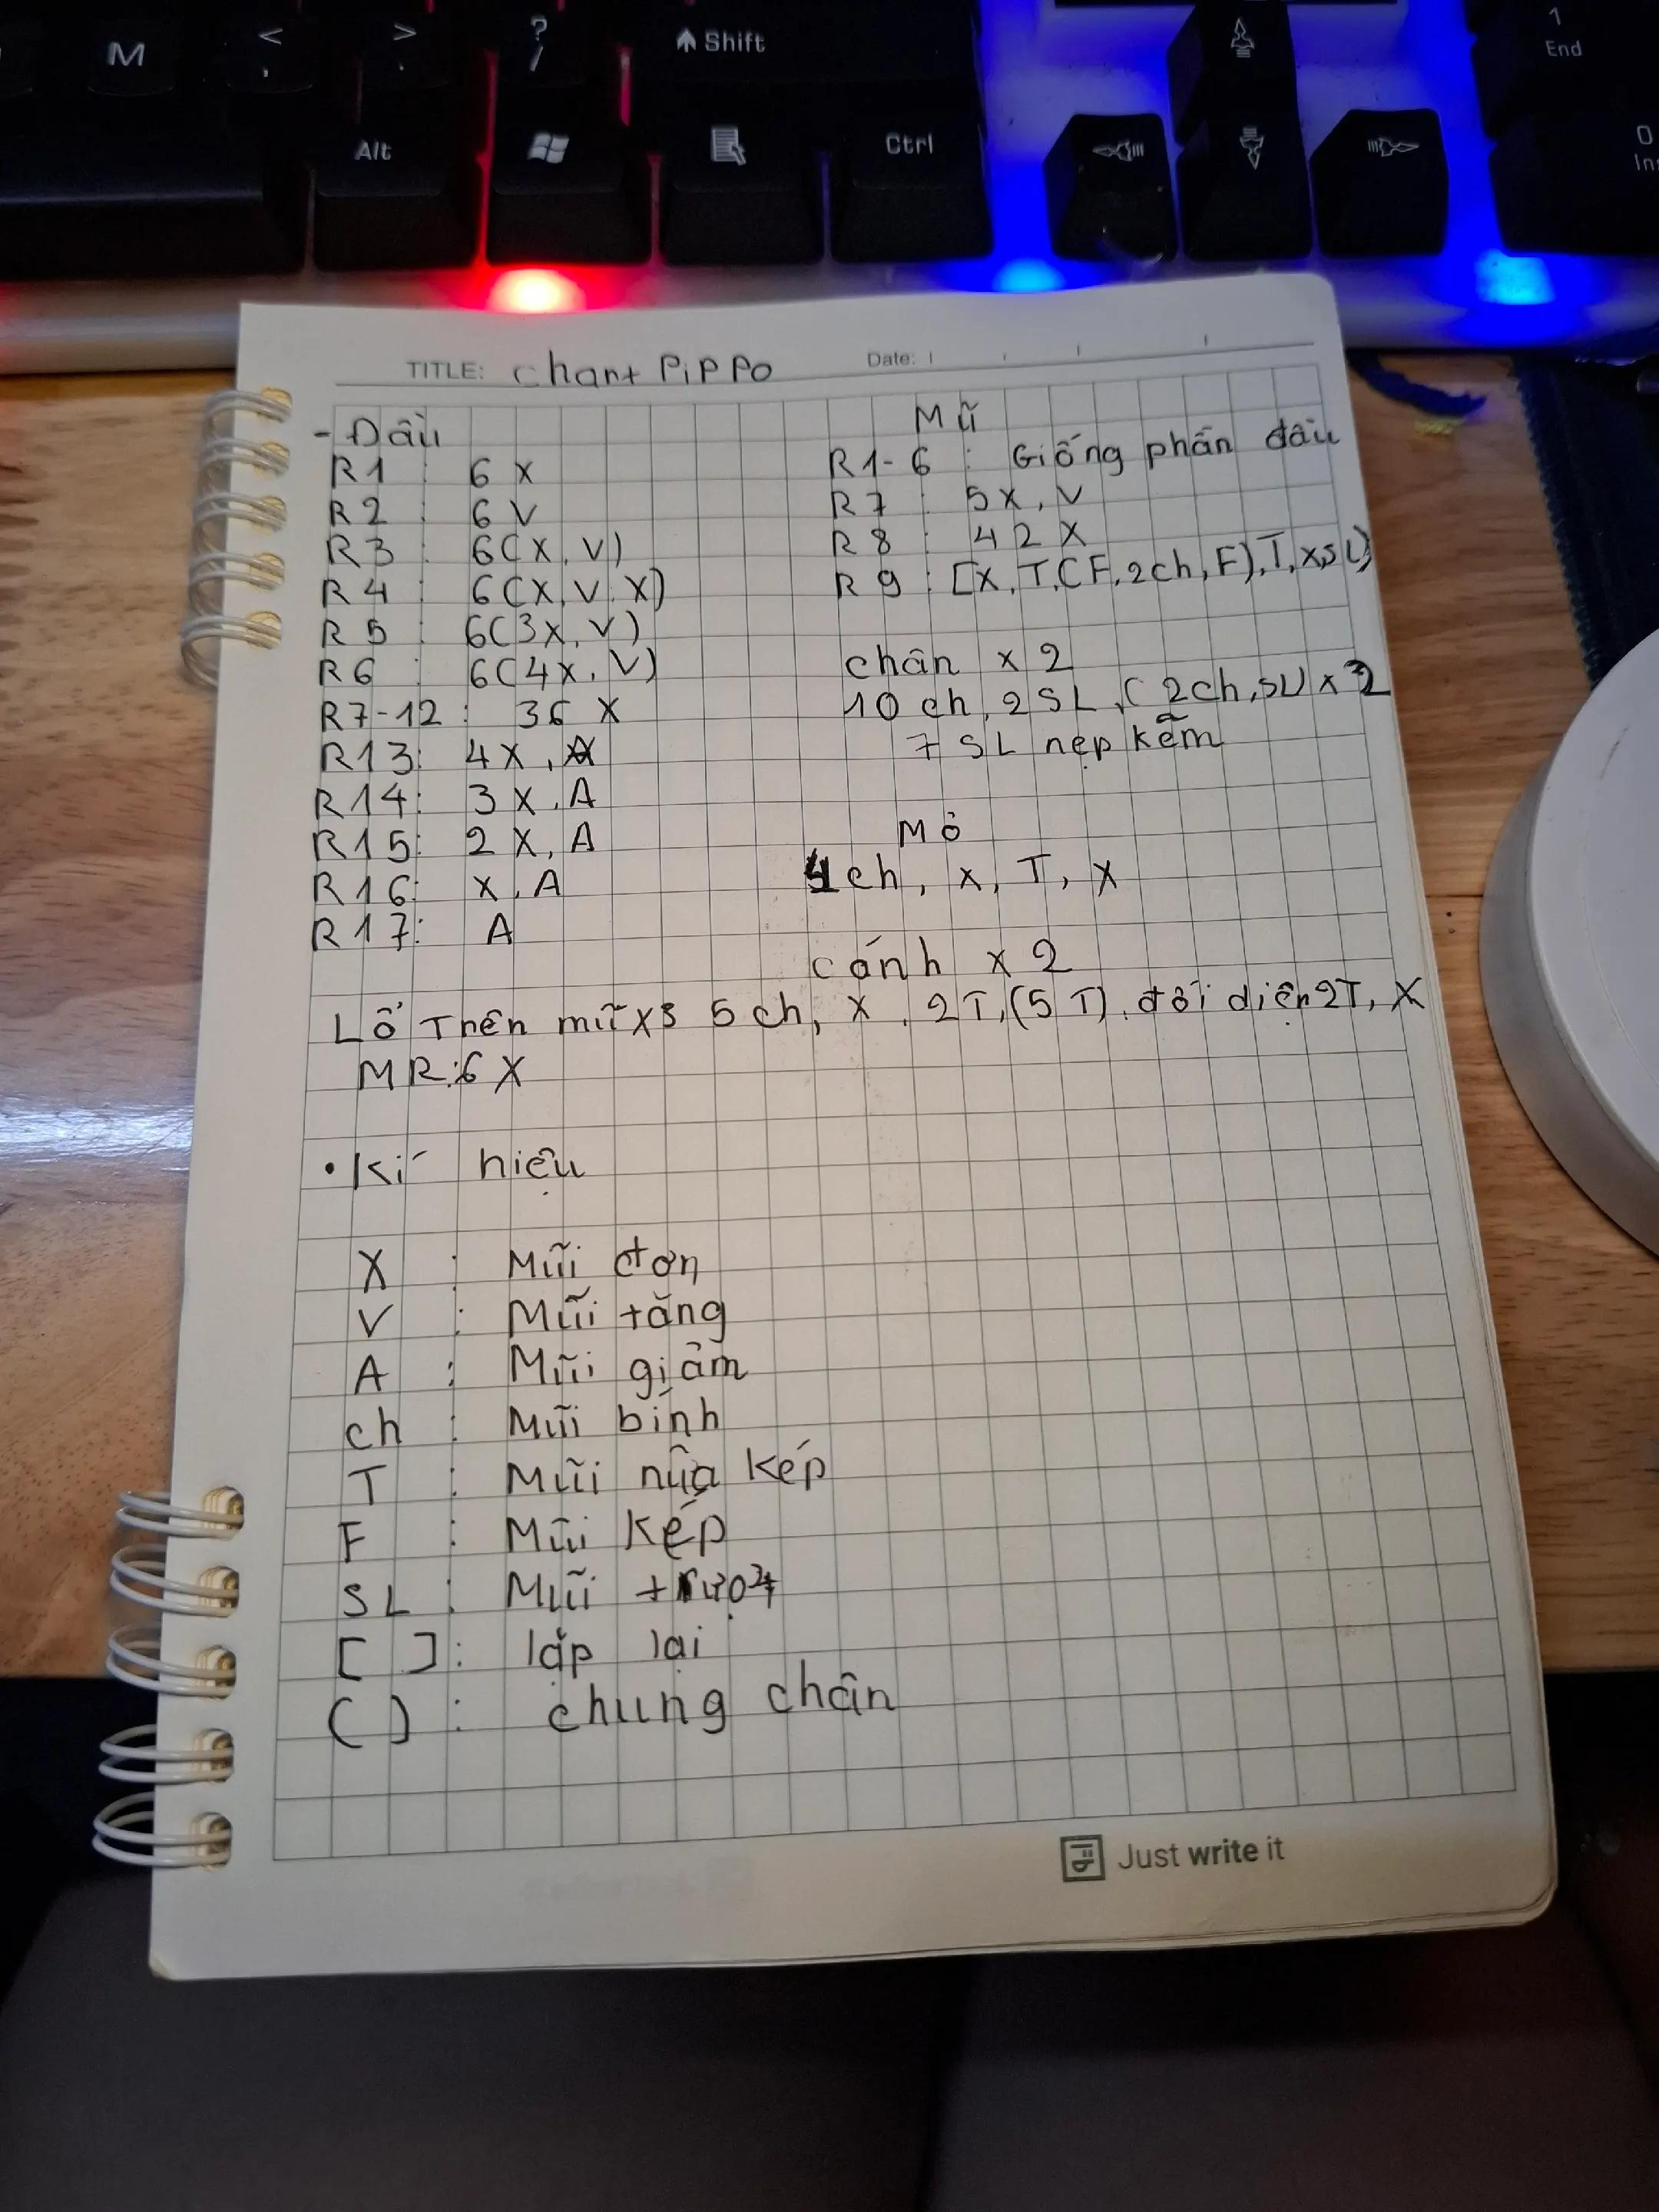 M
<
,
>
.
?
/
Shift
1
End
Alt
Ctrl
0
In
TITLE: Chart PiPPo
Date:
- Đầu
R1 : 6 X
R2 : 6 V
R3 : 6(X, V)
R4 : 6(X, V, X)
R5 : 6(3X, V)
R6 : 6(4X, V)
R7-12 : 36 X
R13: 4X, A
R14: 3X, A
R15: 2X, A
R16: X, A
R17: A
Mũ
R1-6 : Giống phần đầu
R7 : 5X, V
R8 : 42 X
R9 : [X, T, (F, 2ch, F), T, X, SL]
chân x 2
10 ch, 2SL, (2ch, SL) x 2
7 SL nẹp kẽm
Mỏ
4ch, X, T, X
cánh x 2
5 ch, X, 2T, (5T), đối diện 2T, X
Lỗ Trên mũ x3
MR: 6 X
• Kí hiệu
X : Mũi đơn
V : Mũi tăng
A : Mũi giảm
ch : Mũi bính
T : Mũi nửa kép
F : Mũi kép
SL : Mũi trượt
[ ] : lặp lại
( ) : chung chân
Just write it